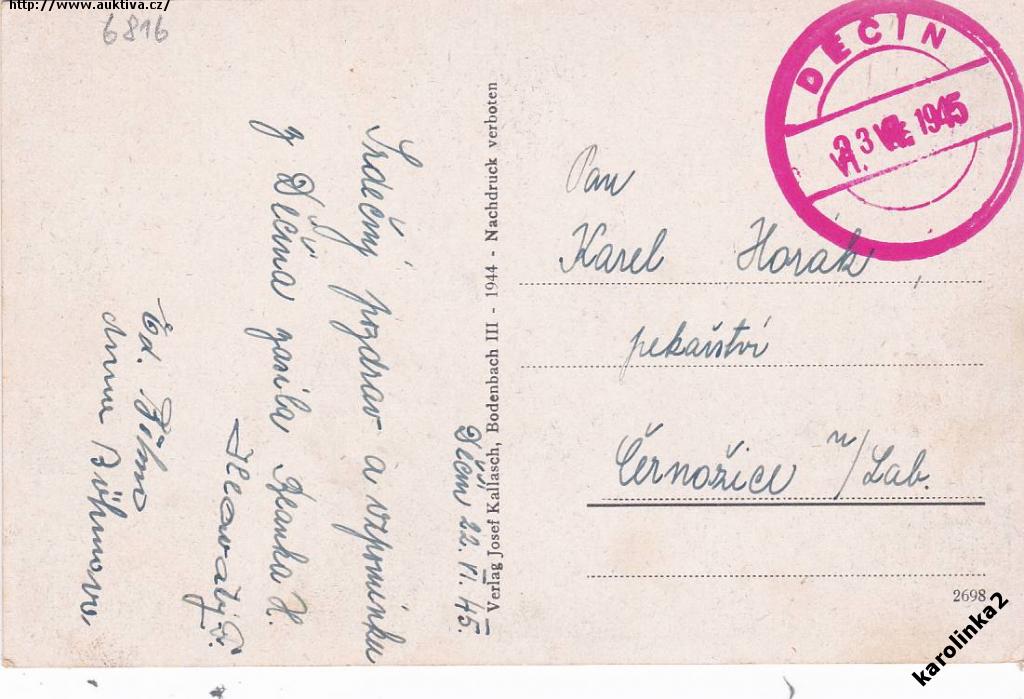 http://www.auktiva.cz/
6816
Děčín 22. VI. 45.
Srdečný pozdrav a vzpomínku
z Děčína zasílá Blanka H.
Hlavatý Fr.
Ed. Böhm
Anna Böhmová
Verlag Josef Kallasch, Bodenbach III - 1944 - Nachdruck verboten
DĚČÍN
23 VI. 1945
Pan
Karel Horák
pekařství
Černožice n/Lab.
2698
karolinka2